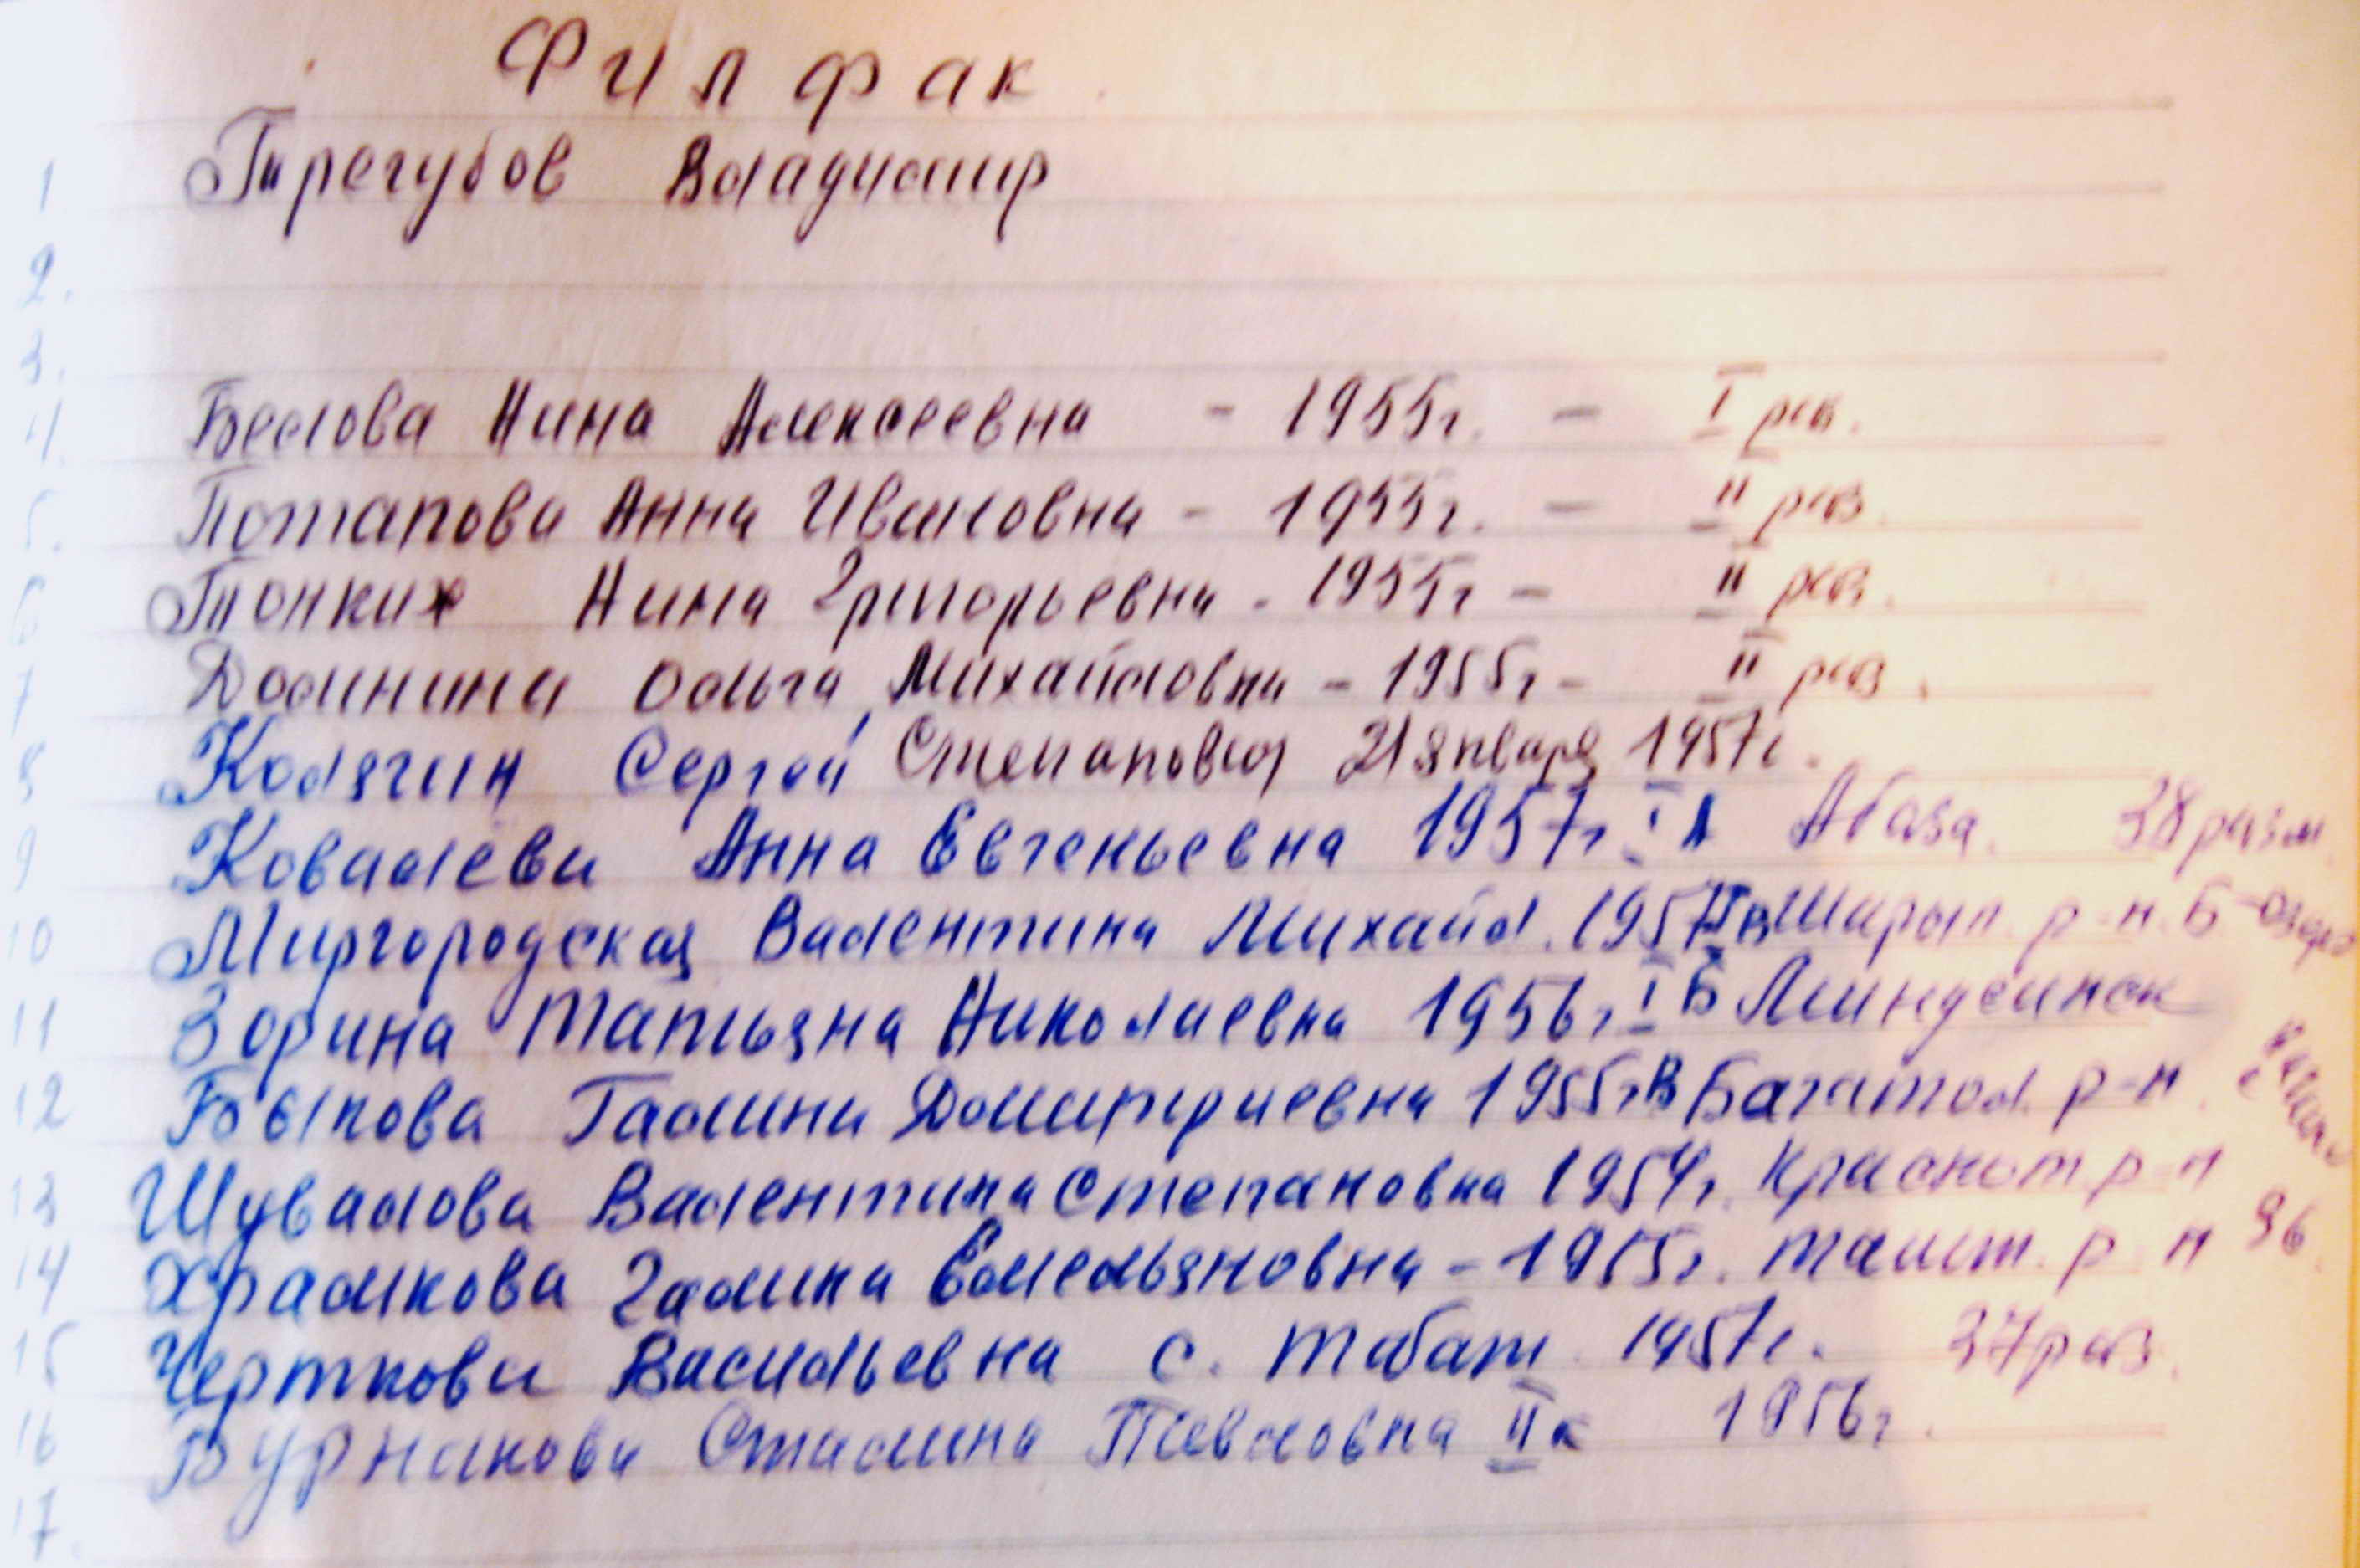 Филфак
1 Трегубов Владимир
2.
3.
4. Белова Нина Алексеевна - 1955г. - I раз.
5. Потапова Анна Ивановна - 1955г. - II раз
6 Тонких Нина Григорьевна - 1955г - II раз.
7 Долинина Ольга Михайловна - 1955г - II раз.
8 Колягин Сергей Степанович 21 января 1957г.
9 Ковалёва Анна Евгеньевна 1957г. I А Абаза. 38 разм.
10 Миргородская Валентина Михайл. 1957 I в Шарып. р-н. Б-озеро
11 Зорина Татьяна Николаевна 1956г I Б Миндеинск
12 Быкова Галина Дмитриевна 1955г В Багатол. р-н.
13 Шувалова Валентина Степановна 1954г. Краснот р-н
14 Храмкова Галина Емельяновна - 1955г. Ташт. р-н 36.
15 Черткова Васильевна с. Табат 1957г. 37 раз.
16 Бурнакова Сталина Павловна II к 1956г.
17.